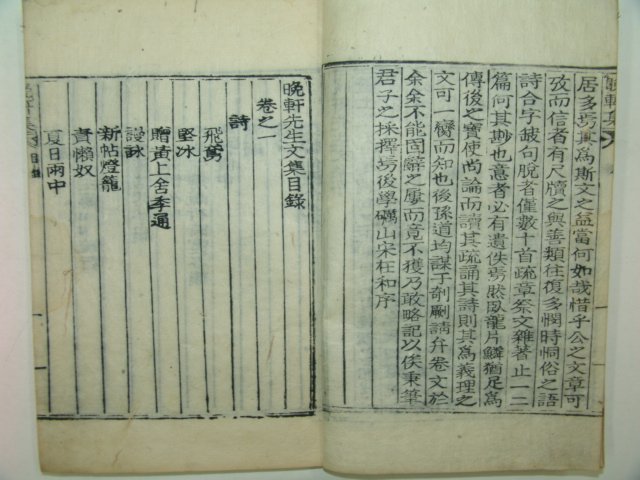 晚軒集
居多焉其爲斯文之益當何如哉惜乎公之文章可
攷而信者有尺牘之與善類往復多憫時恫俗之語
詩合字破句脫者僅數十首疏章祭文雜著止一二
篇何其尠也意者必有遺佚焉然臥龍片鱗猶足爲
傳後之寶使尚論而讀其疏誦其詩則其爲義理之
文可一臠而知也後孫道均謀于剞劂請弁卷文於
余余不能固辭之屢而竟不獲乃敢略記以俟秉筆
君子之採擇焉後學礪山宋在和序
晚軒先生文集目錄
卷之一
詩
飛鳶
堅冰
贈黃上舍季通
謾詠
新帖燈籠
責懶奴
夏日雨中